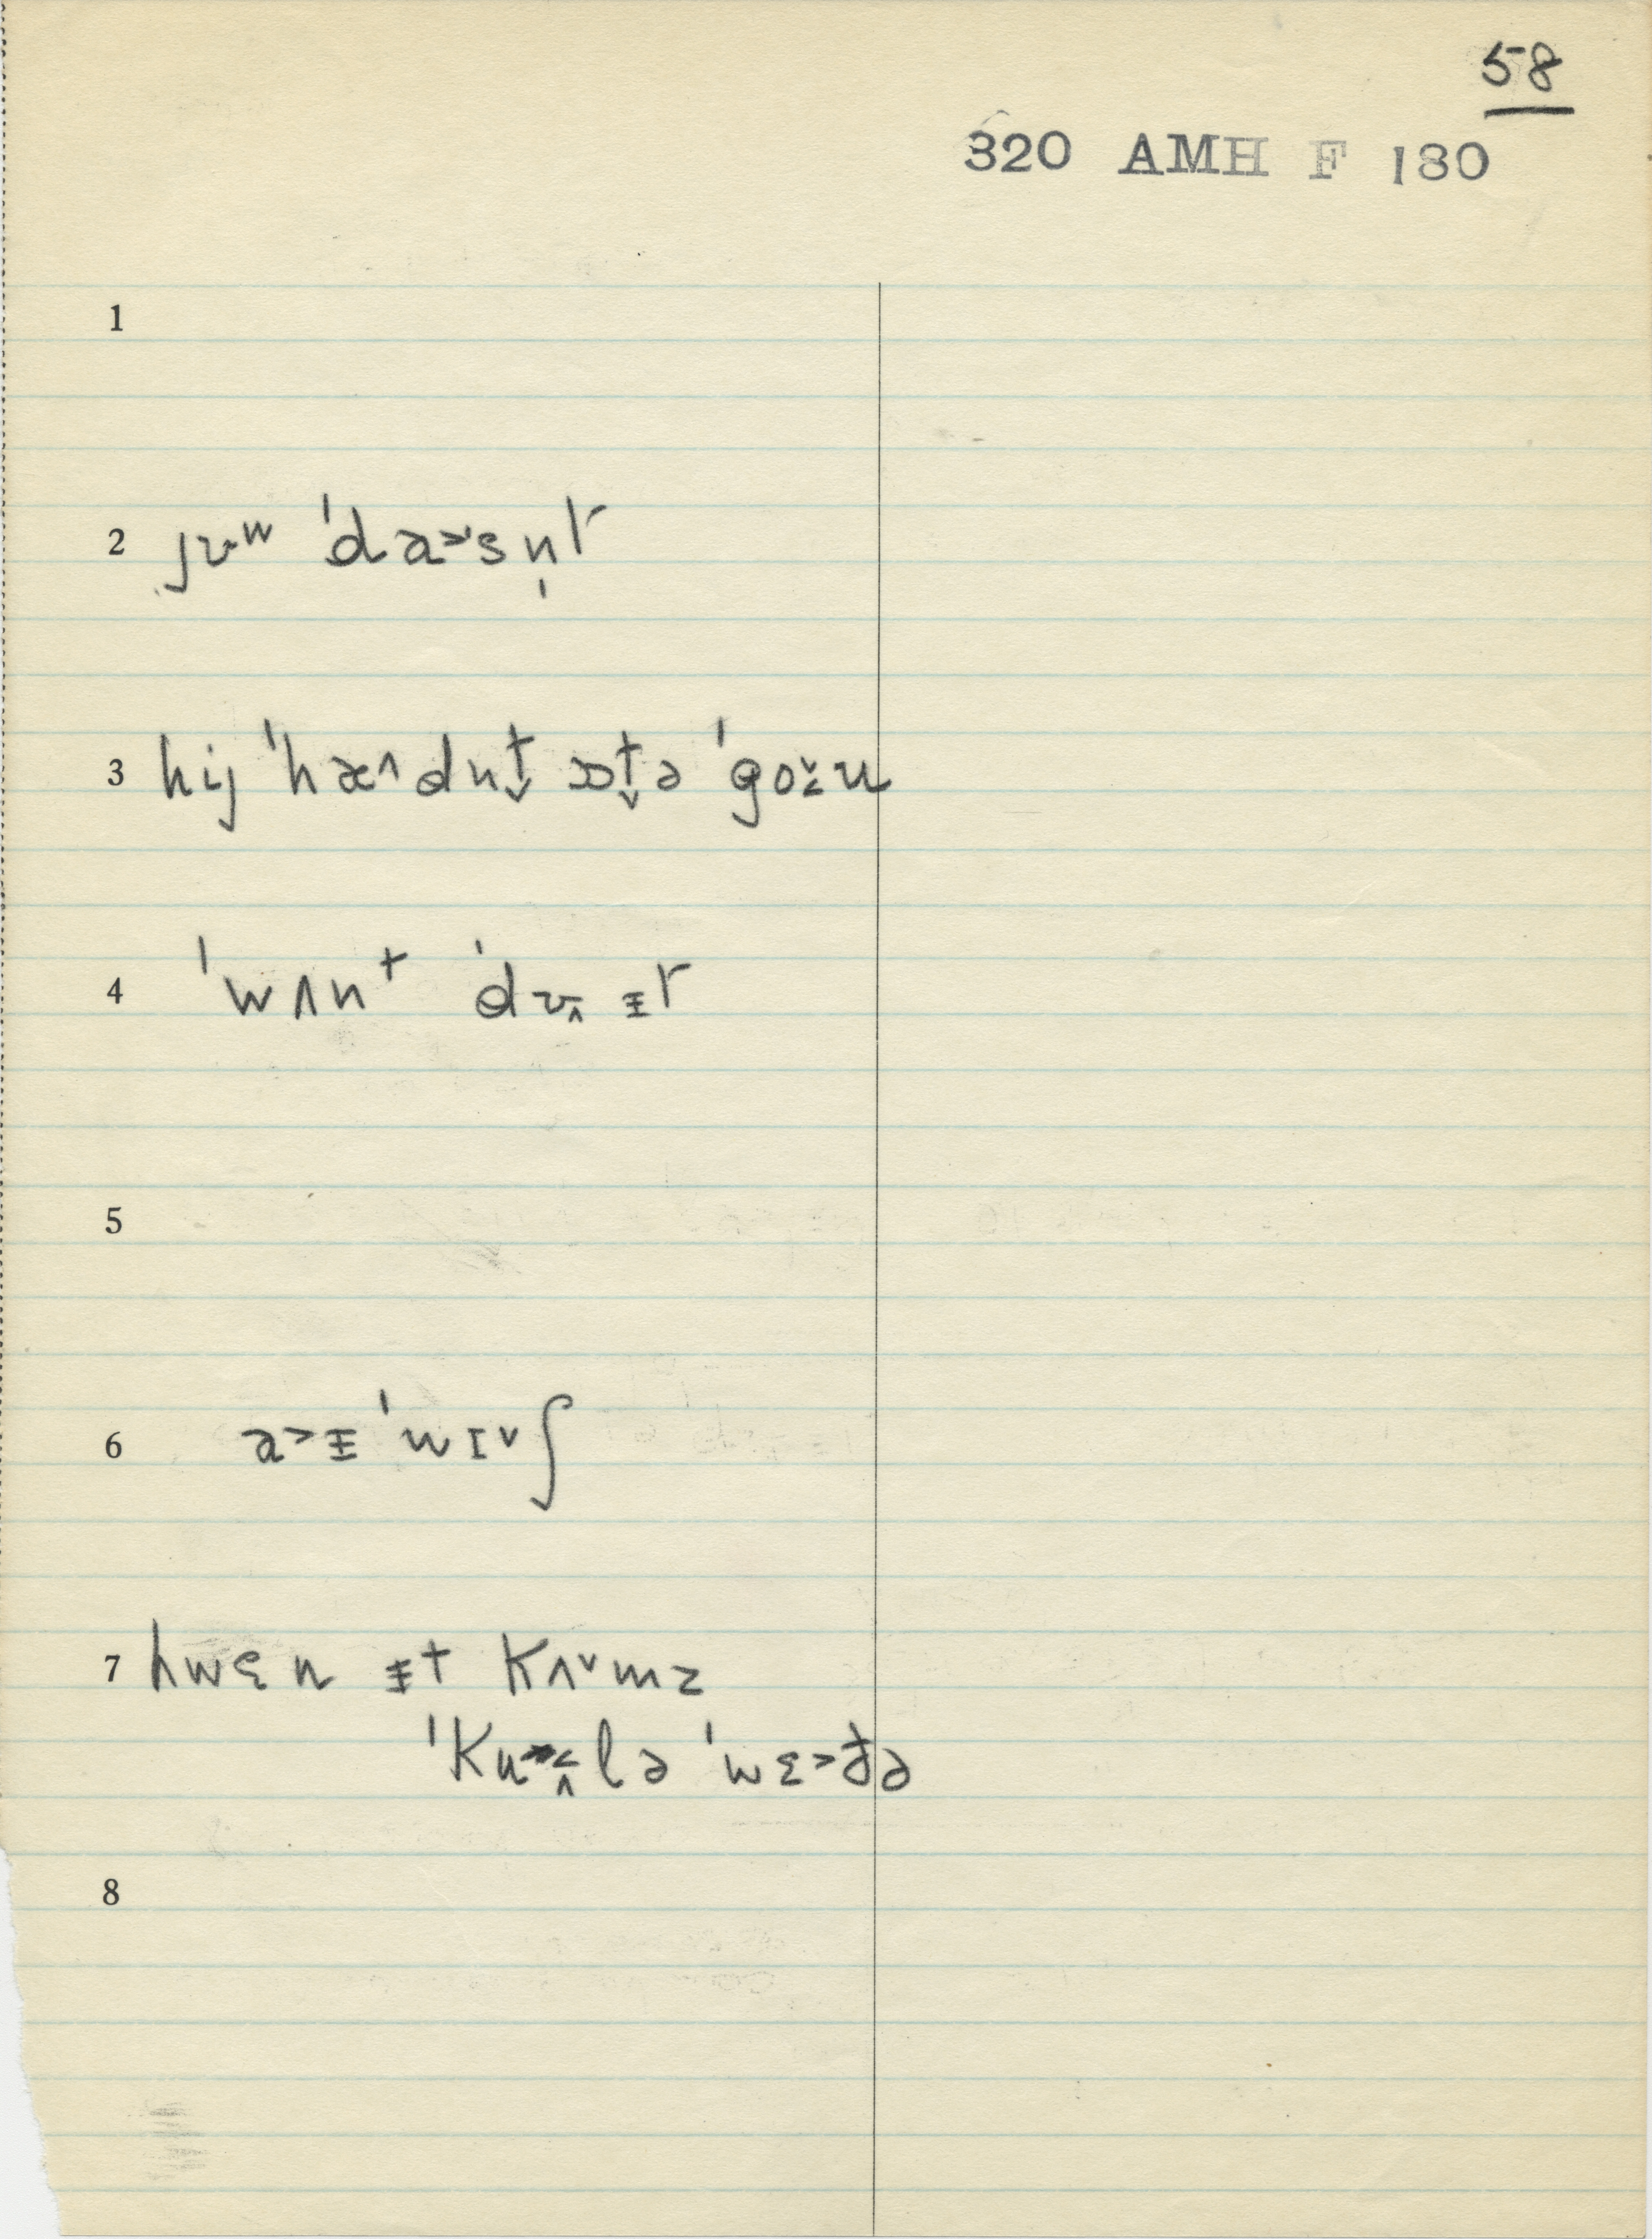 58
320 AMH F 180
1
2 jʊʷ ˈda˃ˑsn̩t˺
3 hij ˈhæ˄dnt̬ ɔt̬ə ˈgo̬˂n
4 ˈwʌnt ˈdʊ̄˄ ᵻt˺
5
6 a˃ᵻ ˈwɪ˅ʃ
7 hwɛn ᵻt kʌ˅mz
ˈkʊ˂˄lə ˈwɛ˃ðə
8